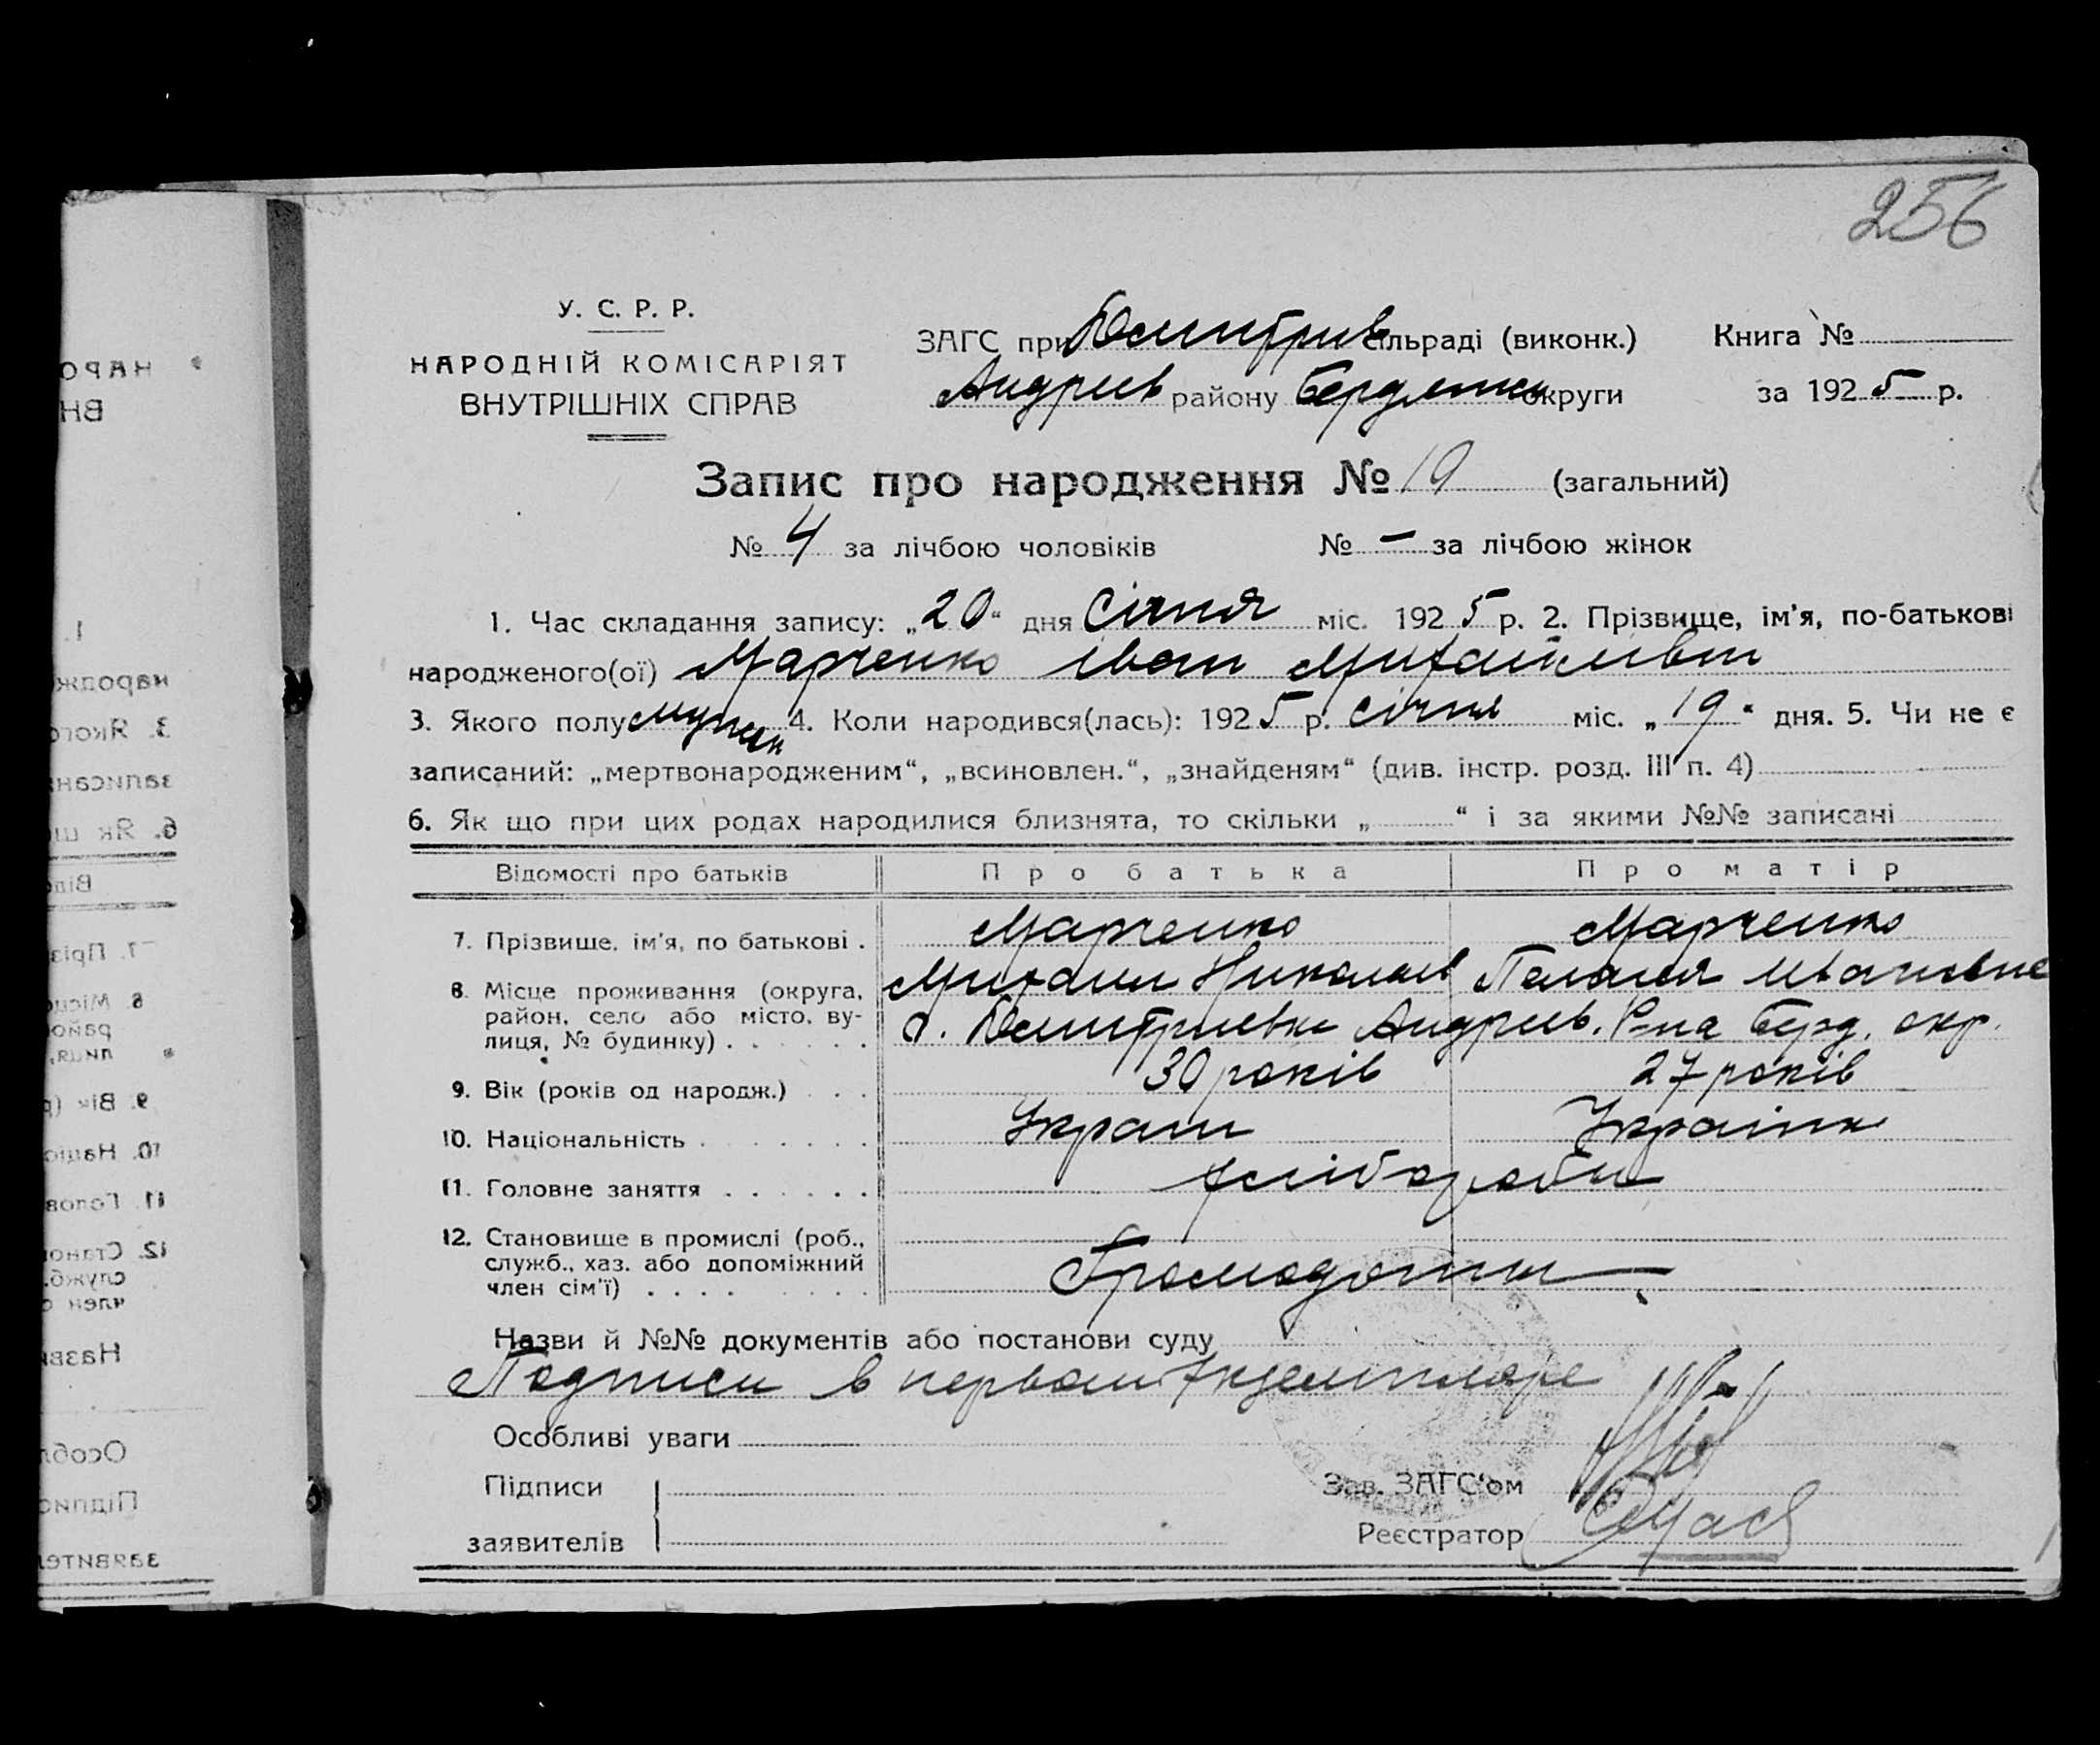 256
У. С. Р. Р.
НАРОДНІЙ КОМІСАРІЯТ
ВНУТРІШНІХ СПРАВ
ЗАГС при Дмитрив сільраді (виконк.) Книга №
Андриев району Бердянськ округи за 1925 р.
Запис про народження № 19 (загальний)
№ 4 за лічбою чоловіків № — за лічбою жінок
1. Час складання запису: „20“ дня Січня міс. 1925 р. 2. Прізвище, ім'я, по-батькові
народженого(ої) Марченко Іван Михайлівич
3. Якого полу мужск 4. Коли народився(лась): 1925 р. січня міс. „19“ дня. 5. Чи не є
записаний: „мертвонародженим“, „всиновлен.“, „знайденям“ (див. інстр. розд. III п. 4)
6. Як що при цих родах народилися близнята, то скільки „ “ і за якими №№ записані
Відомості про батьків Про батька Про матір
7. Прізвище, ім'я, по батькові . Марченко Марченко
Михаил Николаев Пелагея Ивановна
8. Місце проживання (округа, район, село або місто, вулиця, № будинку) . . . . . . с. Дмитриевка Андриев. Р-на Берд. окр.
9. Вік (років од народж.) . . . 30 років 27 років
10. Національність . . . . . . . Украин Українка
11. Головне заняття . . . . . . хлібороби
12. Становище в промислі (роб., служб., хаз. або допоміжний член сім'ї) . . . .
Назви й №№ документів або постанови суду
Подписи в первом экземпляре
Особливі уваги
Підписи
заявителів
Зав. ЗАГС'ом
Реєстратор